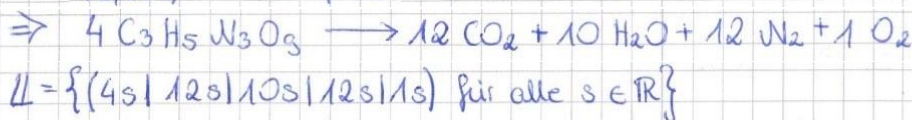 ⇒ 4 C3 H5 N3 O9 ⟶ 12 CO2 + 10 H2O + 12 N2 + 1 O2
𝕃 = {(4s | 12s | 10s | 12s | 1s) für alle s ∈ ℝ}